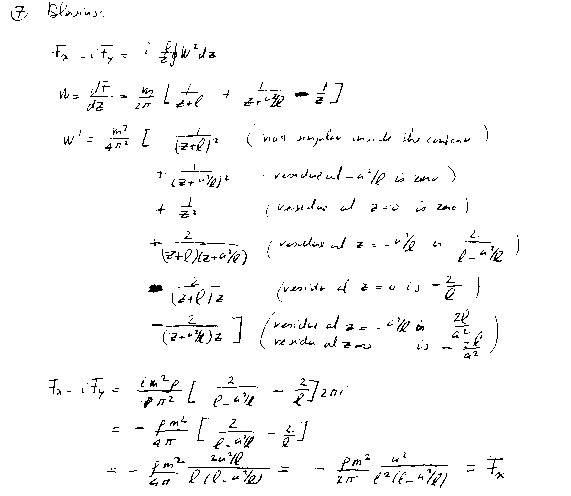 ⑦ Blasius:
Fx - iFy = i ρ/2 ∮ w² dz
w = dF/dz = m/2π [ 1/(z+l) + 1/(z+a²/l) - 1/z ]
w² = m²/4π² [ 1/(z+l)² ( non singular inside the contour )
+ 1/(z+a²/l)² ( residue at -a²/l is zero )
+ 1/z² ( residue at z=0 is zero )
+ 2/((z+l)(z+a²/l)) ( residue at z = -a²/l is 2/(l-a²/l) )
- 2/((z+l)z) ( residue at z=0 is -2/l )
- 2/((z+a²/l)z) ] ( residue at z = -a²/l is 2l/a²
residue at z=0 is -2l/a² )
Fx - iFy = i m² ρ/8π² [ 2/(l-a²/l) - 2/l ] 2πi
= - ρm²/4π [ 2/(l-a²/l) - 2/l ]
= - ρm²/4π 2a²/l / (l(l-a²/l)) = - ρm²/2π a²/(l²(l-a²/l)) = Fx